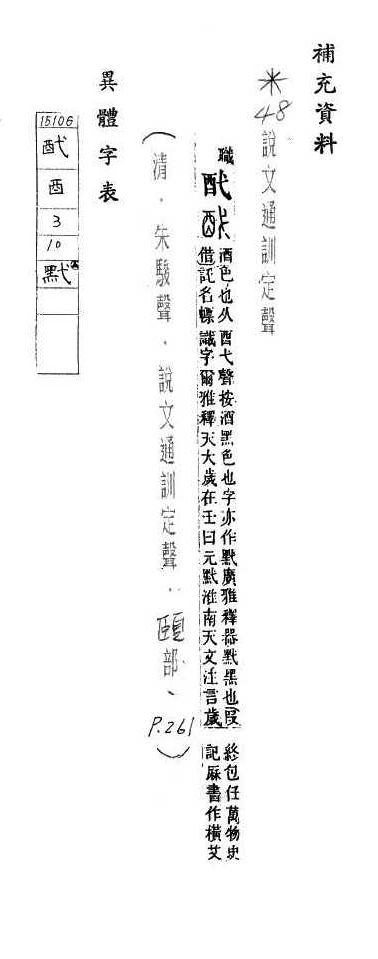 補充資料
＊48說文通訓定聲
職
酒色也从酉弋聲按酒黑色也字亦作黓廣雅釋器黓黑也叚
借託名幖識字爾雅釋天大歲在壬曰元黓淮南天文注言歲
終包任萬物史
記厤書作橫艾
（清．朱駿聲．說文通訓定聲．頤部、P.261）
異體字表
15106
酉
3
10
黓